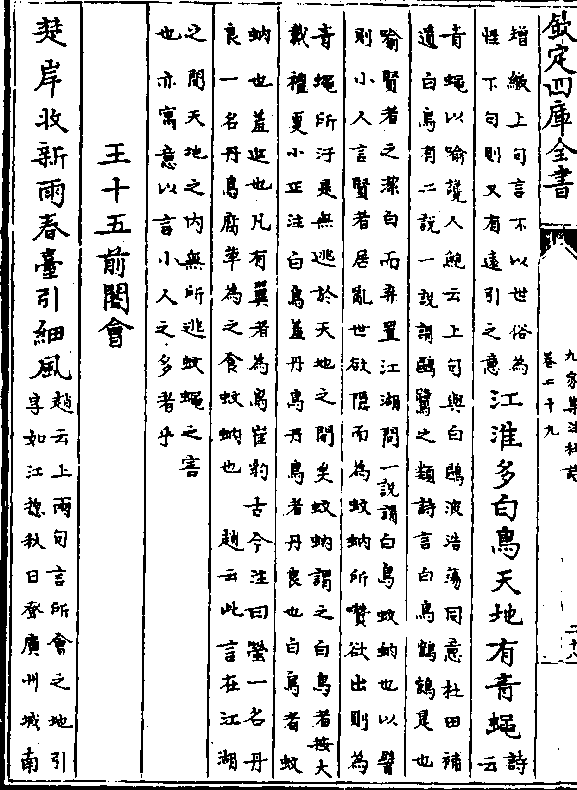 欽定四庫全書
九家集注杜詩
卷二十九
二十八
增繳上句言不以世俗為
性下句則又有遠引之意
江淮多白鳥天地有青蠅
詩
云
青蠅以喻讒人鮑云上句與白鷗波浩蕩同意杜田補
遺白鳥有二説一説謂鷗鷺之類詩言白鳥鶴鶴是也
喻賢者之潔白而棄置江湖間一説謂白鳥蚊蚋也以譬
則小人言賢者居亂世欲隱而為蚊蚋所囋欲出則為
青蠅所汙是無逃於天地之間矣蚊蚋謂之白鳥者按大
戴禮夏小正注白鳥蓋丹鳥丹鳥者丹良也白鳥者蚊
蚋也蓋逃也凡有翼者為鳥崔豹古今注曰螢一名丹
良一名丹鳥腐草為之食蚊蚋也　趙云此言在江湖
之間天地之内無所逃蚊蠅之害
也亦寓意以言小人之多者乎
王十五前閣會
楚岸收新雨春臺引細風
趙云上兩句言所會之地引
字如江揔秋日登廣州城南